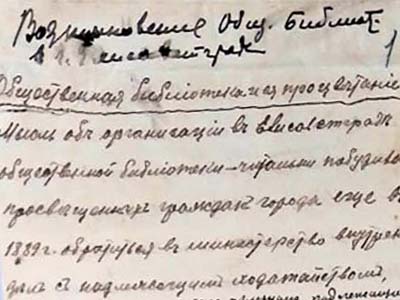 Возникновение Общ. Библиот.
в г. Елисаветграде
1
Общественная библиотека и ея процветаніе
Мысль объ организаціи въ Елисаветградѣ
общественной библіотеки-читальни побудила
просвѣщенныхъ гражданъ города еще въ
1889 г. обратиться въ министерство внутрен
дѣлъ съ надлежащимъ ходатайствомъ,